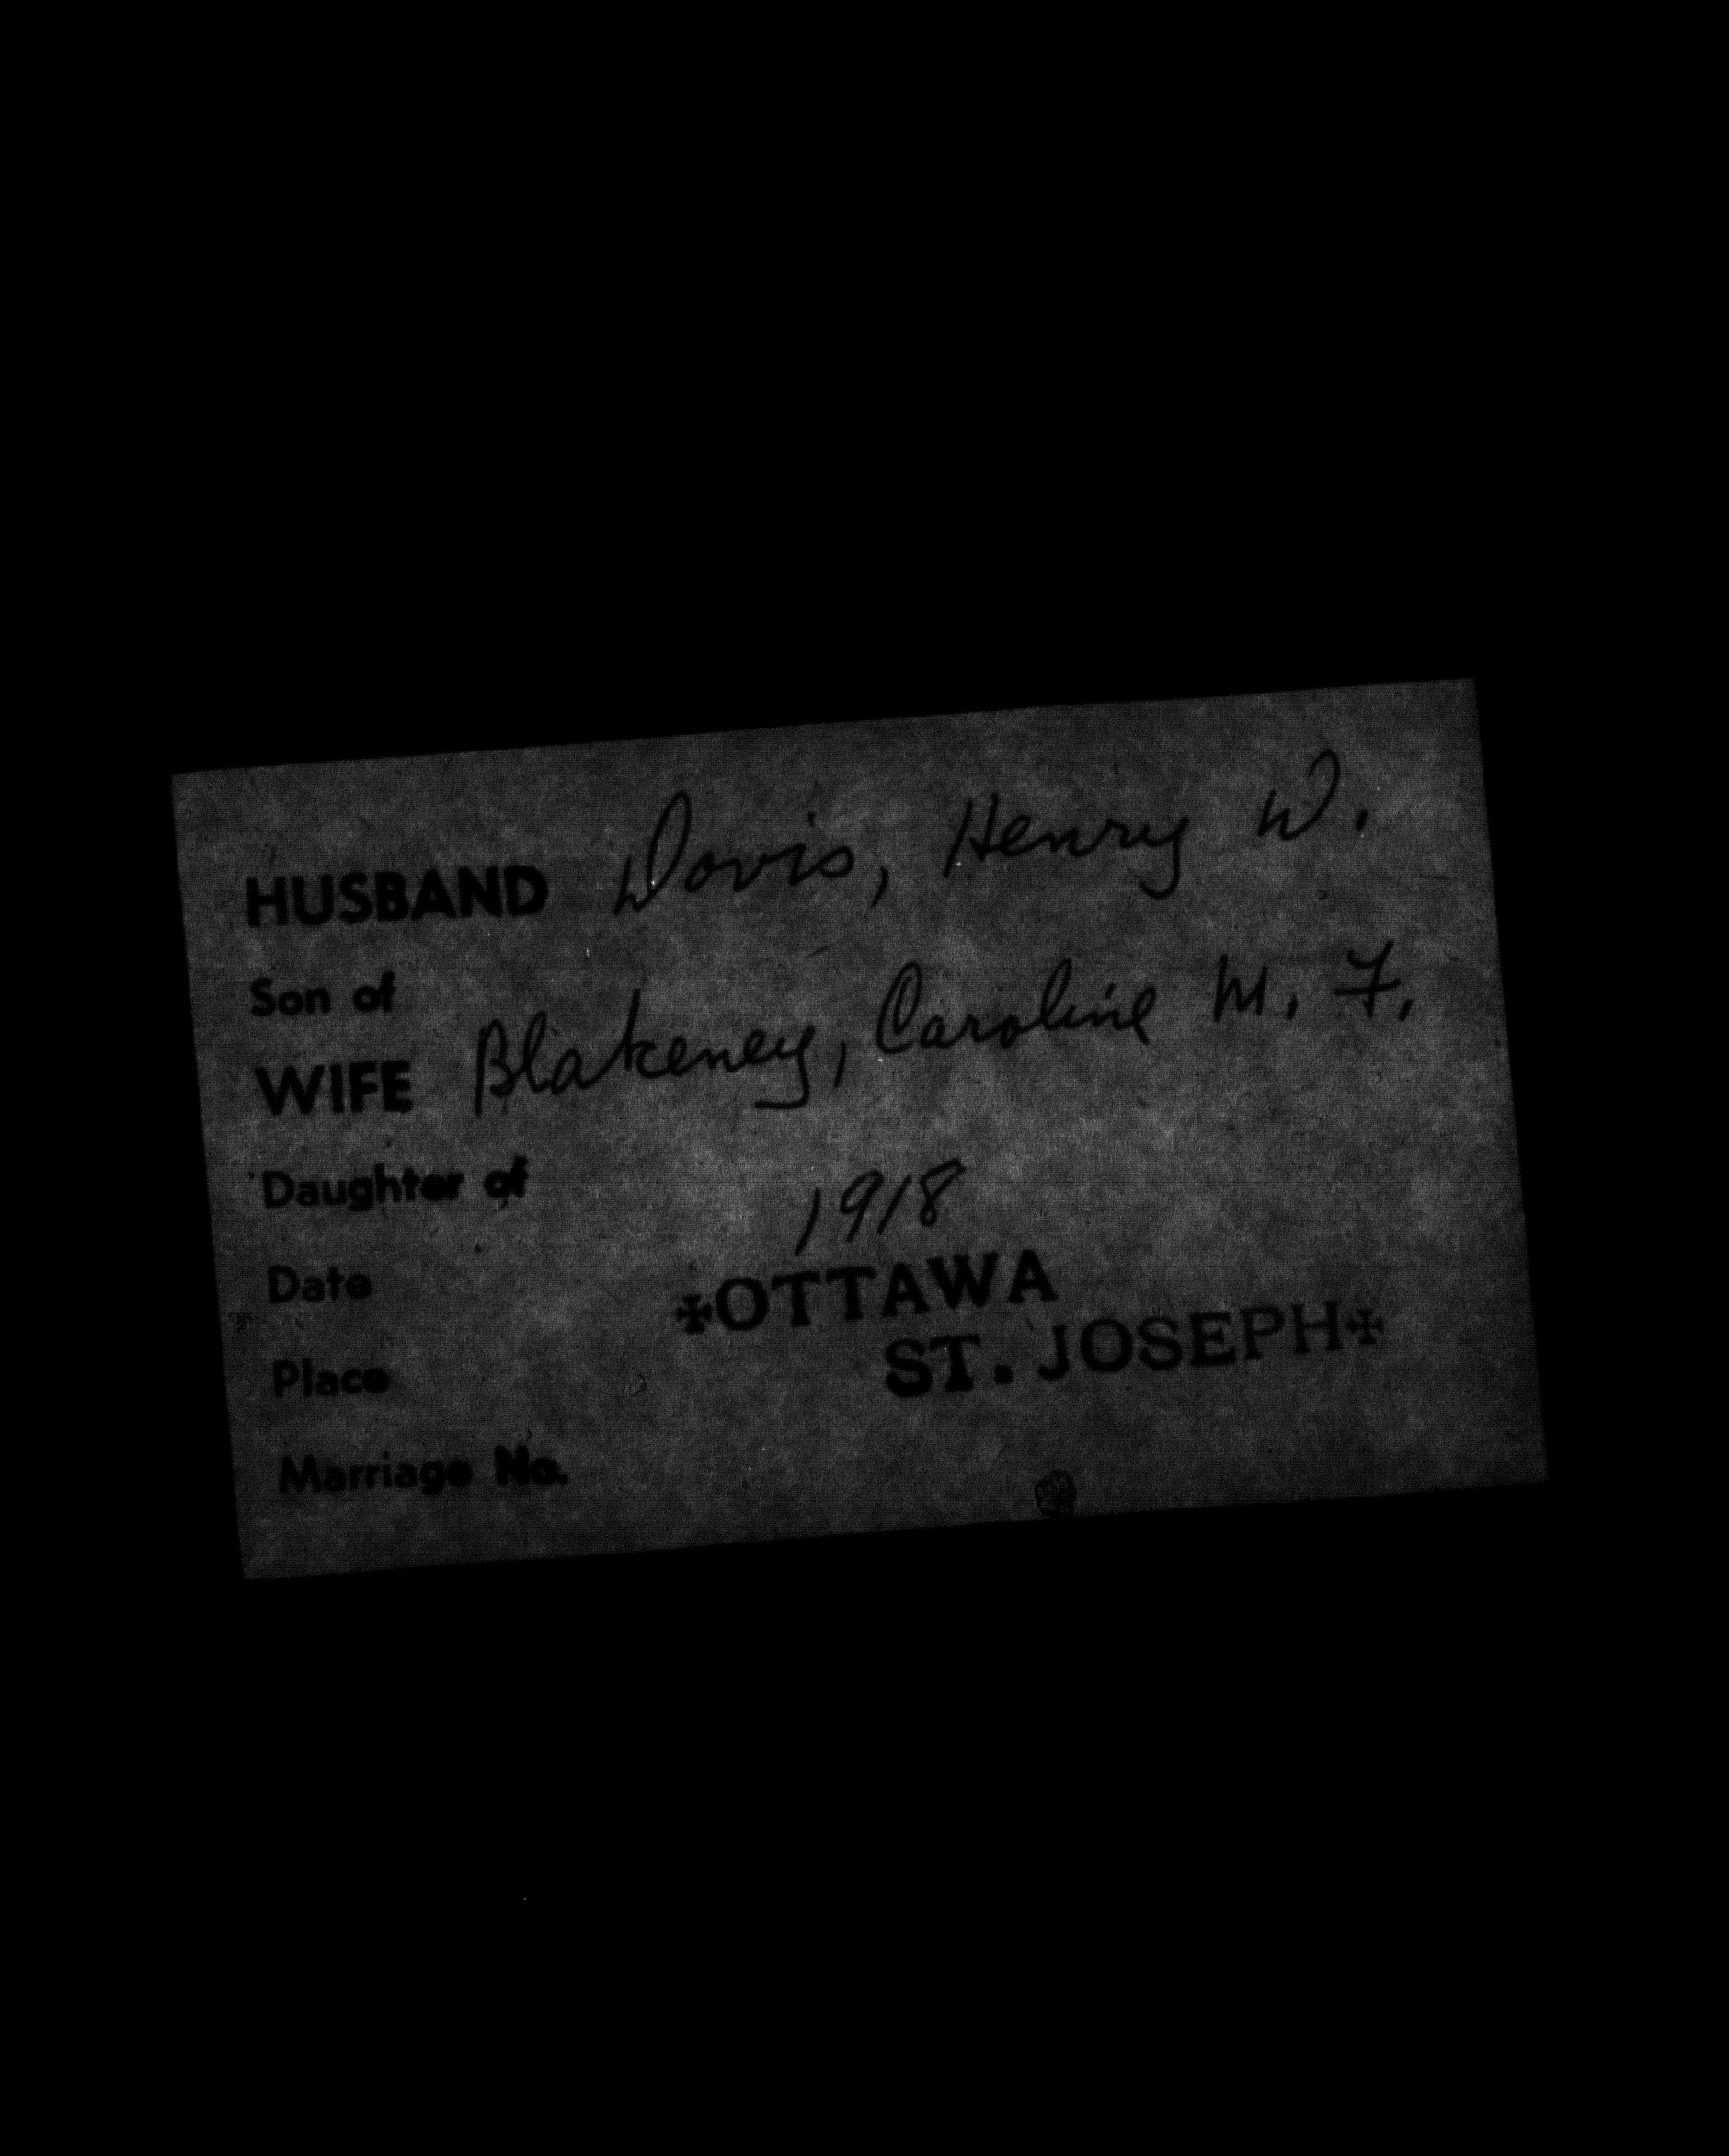 HUSBAND Davis, Henry W.
Son of
WIFE Blakeney, Caroline M. F.
Daughter of
Date 1918
Place ✠OTTAWA
ST. JOSEPH✠
Marriage No.